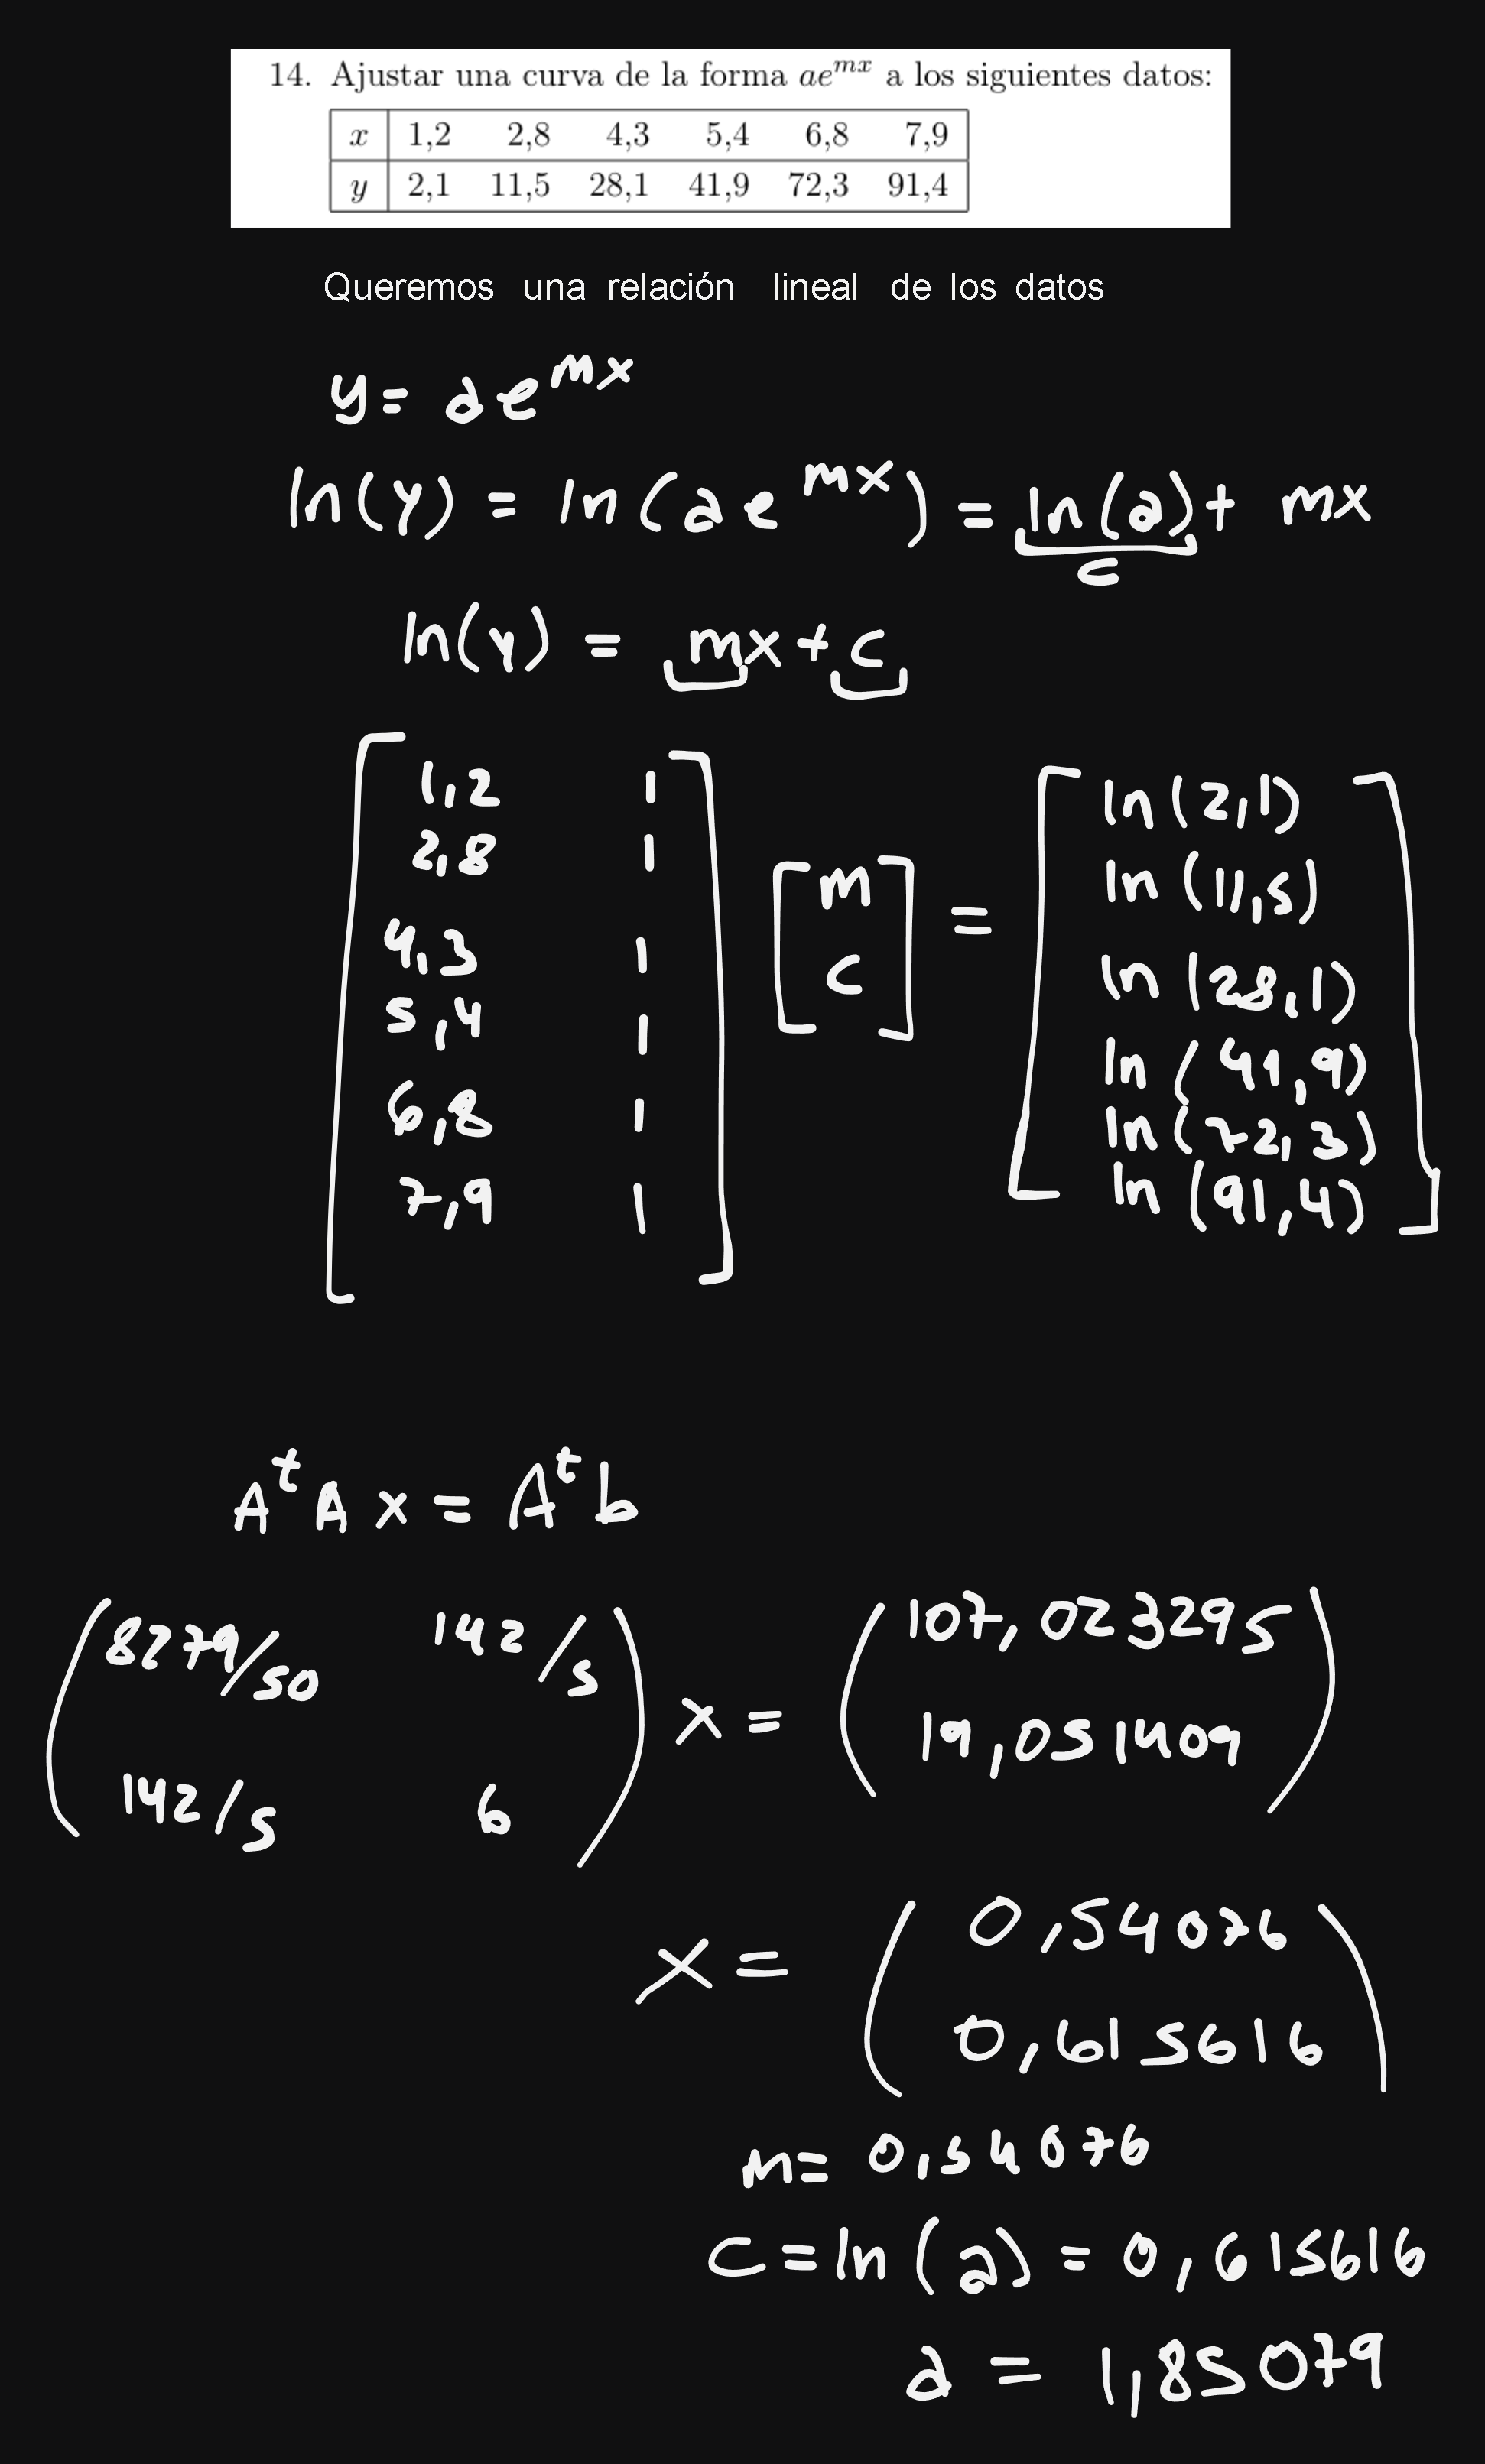 14. Ajustar una curva de la forma ae^{mx} a los siguientes datos:
x 1,2 2,8 4,3 5,4 6,8 7,9
y 2,1 11,5 28,1 41,9 72,3 91,4
Queremos una relación lineal de los datos
y = a e^{mx}
ln(y) = ln(a e^{mx}) = ln(a) + mx
c
ln(y) = mx + c
1,2 1 ln(2,1)
2,8 1 m ln(11,5)
4,3 1 = ln(28,1)
5,4 1 c ln(41,9)
6,8 1 ln(72,3)
7,9 1 ln(91,4)
A^t A x = A^t b
8279/50 142/5 107,023295
x =
142/5 6 19,051409
0,54076
x =
0,615616
m = 0,54076
c = ln(a) = 0,615616
a = 1,85079